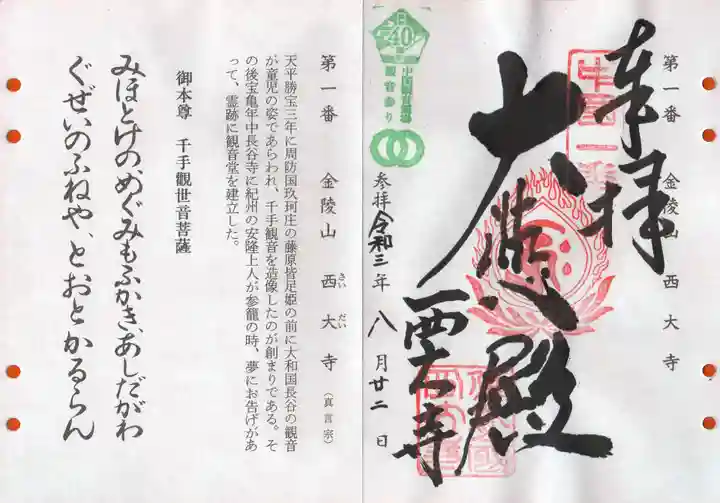 第一番 金陵山 西大寺
奉拝
大悲殿
西大寺
中国一番
参拝 令和三年 八月廿二日
40
中国観音霊場
観音参り
第一番 金陵山 西大寺 (真言宗)
さいだい
天平勝宝三年に周防国玖珂庄の藤原皆足姫の前に大和国長谷の観音
が童児の姿であらわれ、千手観音を造像したのが創まりである。そ
の後宝亀年中長谷寺に紀州の安隆上人が参籠の時、夢にお告げがあ
って、霊跡に観音堂を建立した。
御本尊 千手觀世音菩薩
みほとけの、めぐみもふかき、あしだがわ
ぐぜいのふねや、とおとかるらん